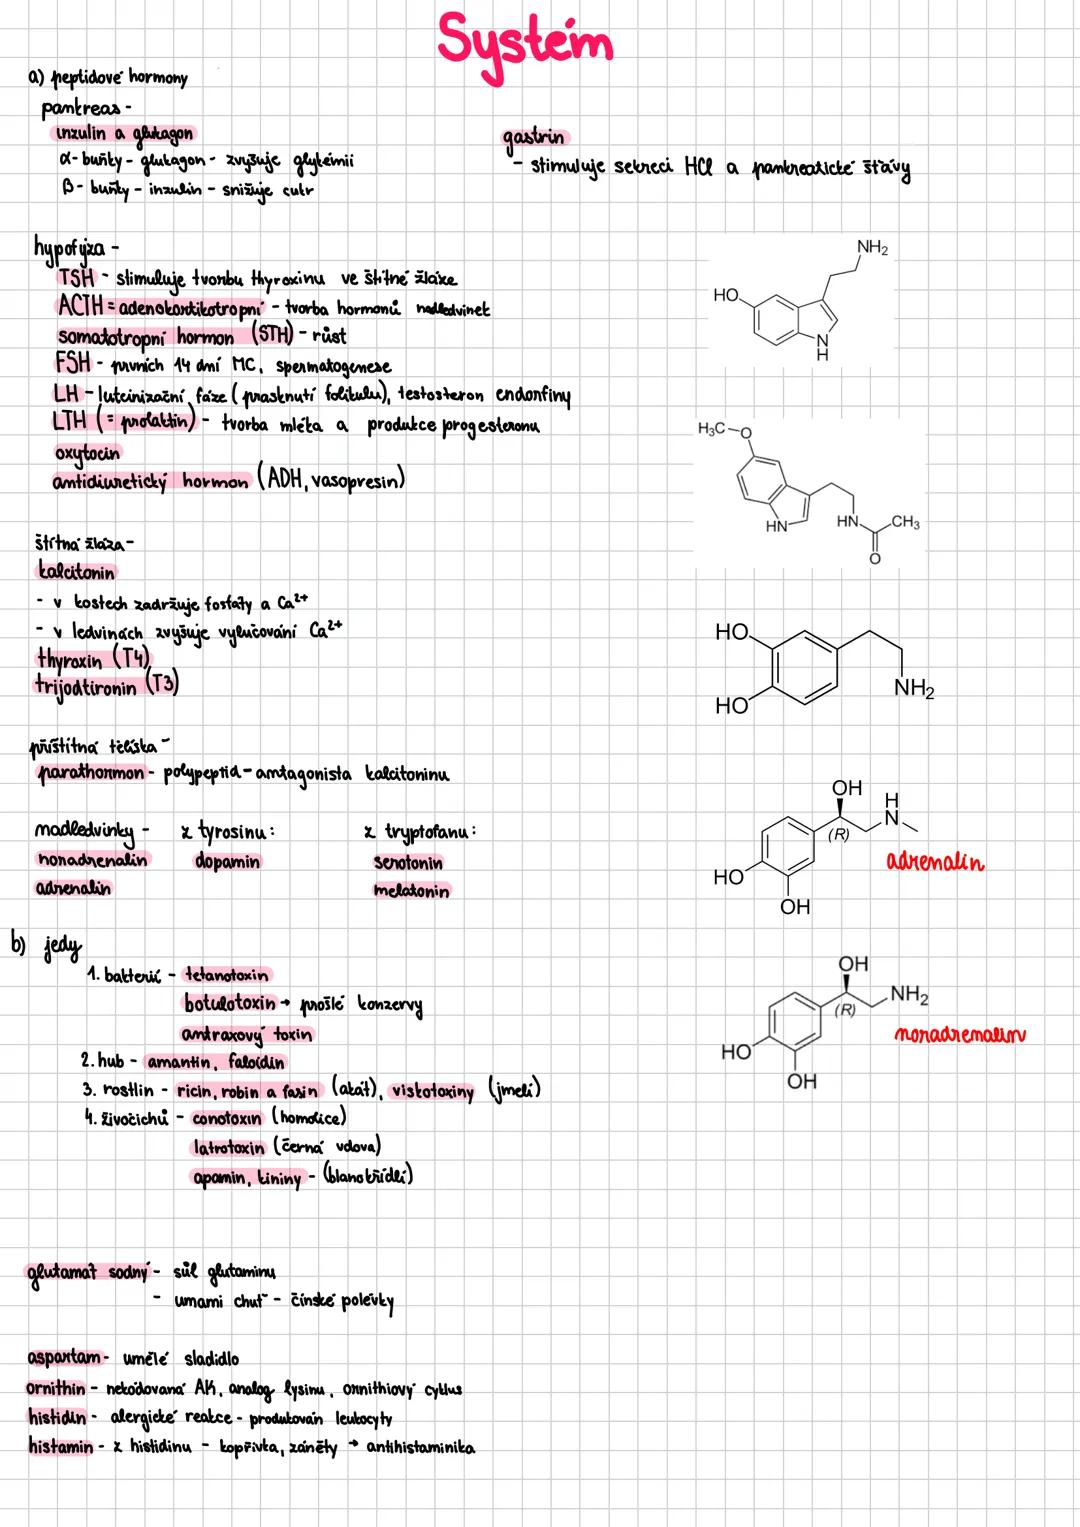 Systém
a) peptidové hormony
pankreas -
inzulin a glukagon
α- buňky - glukagon - zvyšuje glykémii
β- buňky - inzulin - snižuje cukr
gastrin
- stimuluje sekreci HCl a pankreatické šťávy
hypofýza -
TSH - stimuluje tvorbu thyroxinu ve štítné žláze
ACTH = adenokortikotropní - tvorba hormonů nadledvinek
somatotropní hormon (STH) - růst
FSH - prvních 14 dní MC, spermatogenese
LH - luteinizační fáze (prasknutí folikulu), testosteron endorfiny
LTH (= prolaktin) - tvorba mléka a produkce progesteronu
oxytocin
antidiuretický hormon (ADH, vasopresin)
NH₂
HO
N
H
štítná žláza -
kalcitonin
- v kostech zadržuje fosfáty a Ca²⁺
- v ledvinách zvyšuje vylučování Ca²⁺
thyroxin (T4)
trijodtironin (T3)
H₃C-O
HN
HN
CH₃
O
příštitná tělíska -
parathormon - polypeptid - antagonista kalcitoninu
HO
HO
NH₂
nadledvinky -
noradrenalin
adrenalin
z tyrosinu:
dopamin
z tryptofanu:
serotonin
melatonin
OH
H
N
(R)
HO
OH
adrenalin
b) jedy
1. bakterií - tetanotoxin
botulotoxin → prošlé konzervy
antraxový toxin
2. hub - amantin, faloidin
3. rostlin - ricin, robin a fasin (akát), viskotoxiny (jmelí)
4. živočichů - conotoxin (homolice)
latrotoxin (černá vdova)
apamin, kininy - (blanokřídlí)
OH
NH₂
(R)
HO
OH
noradrenalin
glutamát sodný - sůl glutaminu
- umami chuť - čínské polévky
aspartam - umělé sladidlo
ornithin - nekódovaná AK, analog lysinu, ornithiový cyklus
histidin - alergické reakce - produkován leukocyty
histamin - z histidinu - kopřivka, záněty → antihistaminika